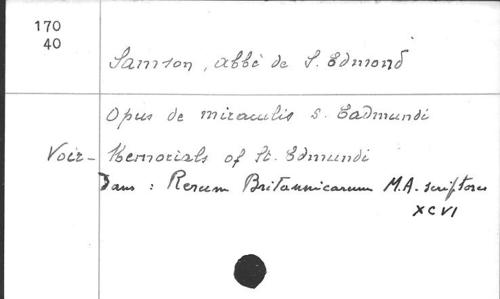 170
40
Samson, abbé de S. Edmond
Opus de miraculis s. Eadmundi
Voir - Memorials of St. Edmundi
Dans : Rerum Britannicarum M.A. scriptores
XCVI